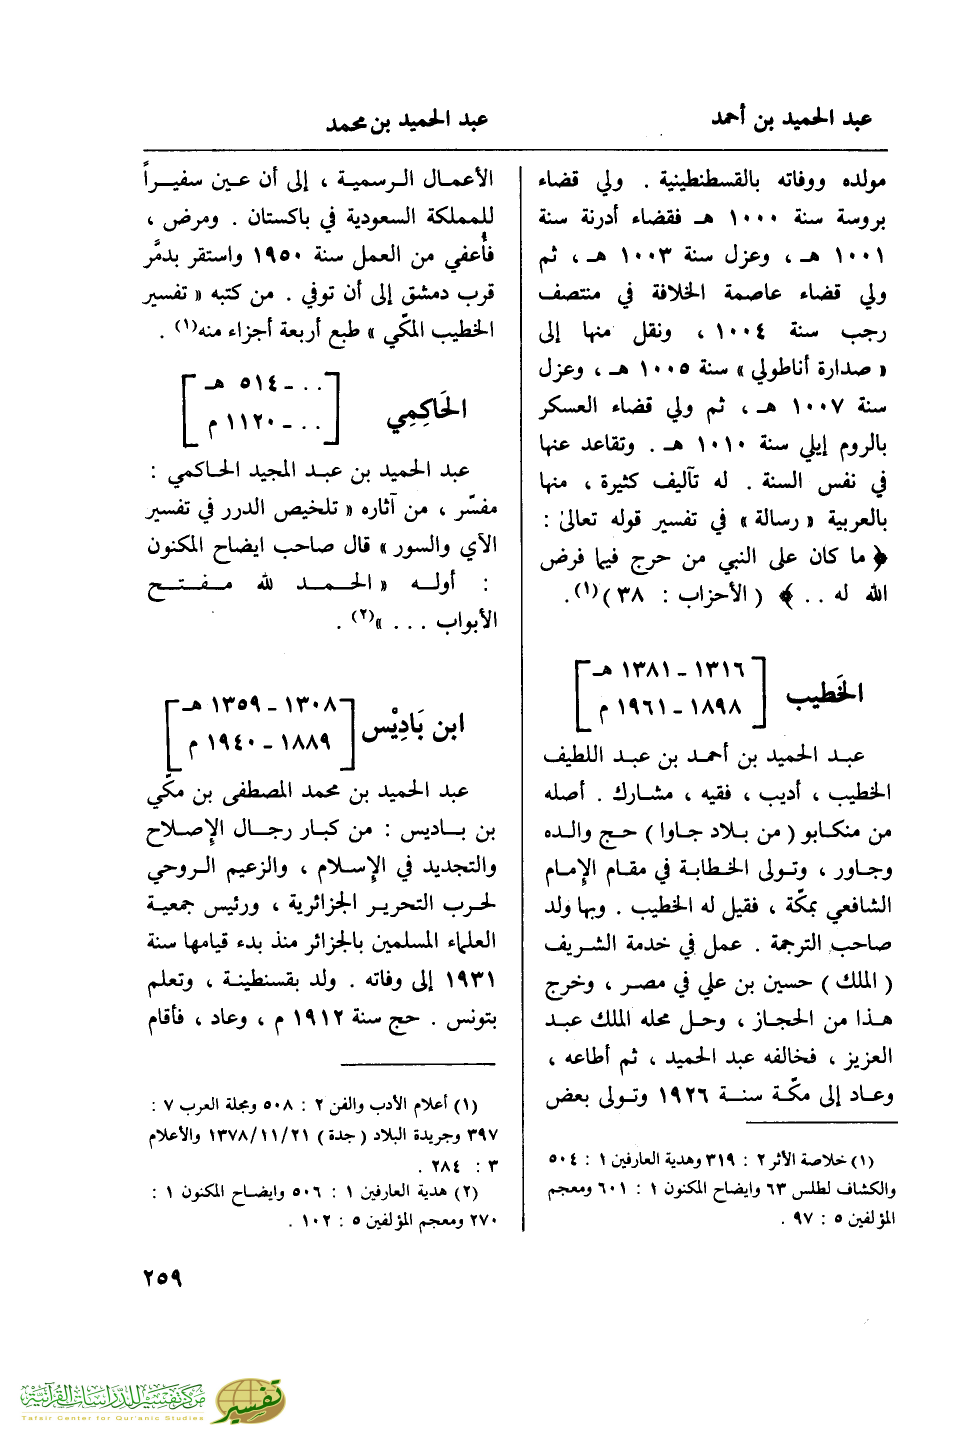 عبد الحميد بن أحمد
عبد الحميد بن محمد
مولده ووفاته بالقسطنطينية . ولي قضاء
بروسة سنة ١٠٠٠ هـ فقضاء أدرنة سنة
١٠٠١ هـ ، وعزل سنة ١٠٠٣ هـ ، ثم
ولي قضاء عاصمة الخلافة في منتصف
رجب سنة ١٠٠٤ ، ونقل منها إلى
« صدارة أناطولي » سنة ١٠٠٥ هـ ، وعزل
سنة ١٠٠٧ هـ ، ثم ولي قضاء العسكر
بالروم إيلي سنة ١٠١٠ هـ . وتقاعد عنها
في نفس السنة . له تآليف كثيرة ، منها
بالعربية « رسالة » في تفسير قوله تعالىٰ :
﴿ ما كان على النبي من حرج فيما فرض
الله له . . ﴾ ( الأحزاب : ٣٨ )(١) .
الخَطيب
[ ١٣١٦ - ١٣٨١ هـ
١٨٩٨ - ١٩٦١ م ]
عبد الحميد بن أحمد بن عبد اللطيف
الخطيب ، أديب ، فقيه ، مشارك . أصله
من منكابو ( من بلاد جاوا ) حج والده
وجاور ، وتولى الخطابة في مقام الإمام
الشافعي بمكّة ، فقيل له الخطيب . وبها ولد
صاحب الترجمة . عمل في خدمة الشريف
( الملك ) حسين بن علي في مصر ، وخرج
هذا من الحجاز ، وحل محله الملك عبد
العزيز ، فخالفه عبد الحميد ، ثم أطاعه ،
وعاد إلى مكّة سنة ١٩٢٦ وتولى بعض
(١) خلاصة الأثر ٢ : ٣١٩ وهدية العارفين ١ : ٥٠٤
والكشاف لطلس ٦٣ وايضاح المكنون ١ : ٦٠١ ومعجم
المؤلفين ٥ : ٩٧ .
الأعمال الرسمية ، إلى أن عين سفيراً
للمملكة السعودية في باكستان . ومرض ،
فأُعفي من العمل سنة ١٩٥٠ واستقر بدمَّر
قرب دمشق إلى أن توفي . من كتبه « تفسير
الخطيب المكّي » طبع أربعة أجزاء منه(١) .
الحَاكِمِي
[ . . - ٥١٤ هـ
. . - ١١٢٠ م ]
عبد الحميد بن عبد المجيد الحاكمي :
مفسّر ، من آثاره « تلخيص الدرر في تفسير
الآي والسور » قال صاحب ايضاح المكنون
: أوله « الحمد لله مفتح
الأبواب . . . »(٢) .
ابن بَادِيْس
[ ١٣٠٨ - ١٣٥٩ هـ
١٨٨٩ - ١٩٤٠ م ]
عبد الحميد بن محمد المصطفى بن مكّي
بن باديس : من كبار رجال الإصلاح
والتجديد في الإسلام ، والزعيم الروحي
لحرب التحرير الجزائرية ، ورئيس جمعية
العلماء المسلمين بالجزائر منذ بدء قيامها سنة
١٩٣١ إلى وفاته . ولد بقسنطينة ، وتعلم
بتونس . حج سنة ١٩١٢ م ، وعاد ، فأقام
(١) أعلام الأدب والفن ٢ : ٥٠٨ ومجلة العرب ٧ :
٣٩٧ وجريدة البلاد ( جدة ) ١٣٧٨/١١/٢١ والأعلام
٣ : ٢٨٤ .
(٢) هدية العارفين ١ : ٥٠٦ وايضاح المكنون ١ :
٢٧٠ ومعجم المؤلفين ٥ : ١٠٢ .
٢٥٩
مركز تفسير للدراسات القرآنية
Tafsir Center for Qur'anic Studies
تفسير